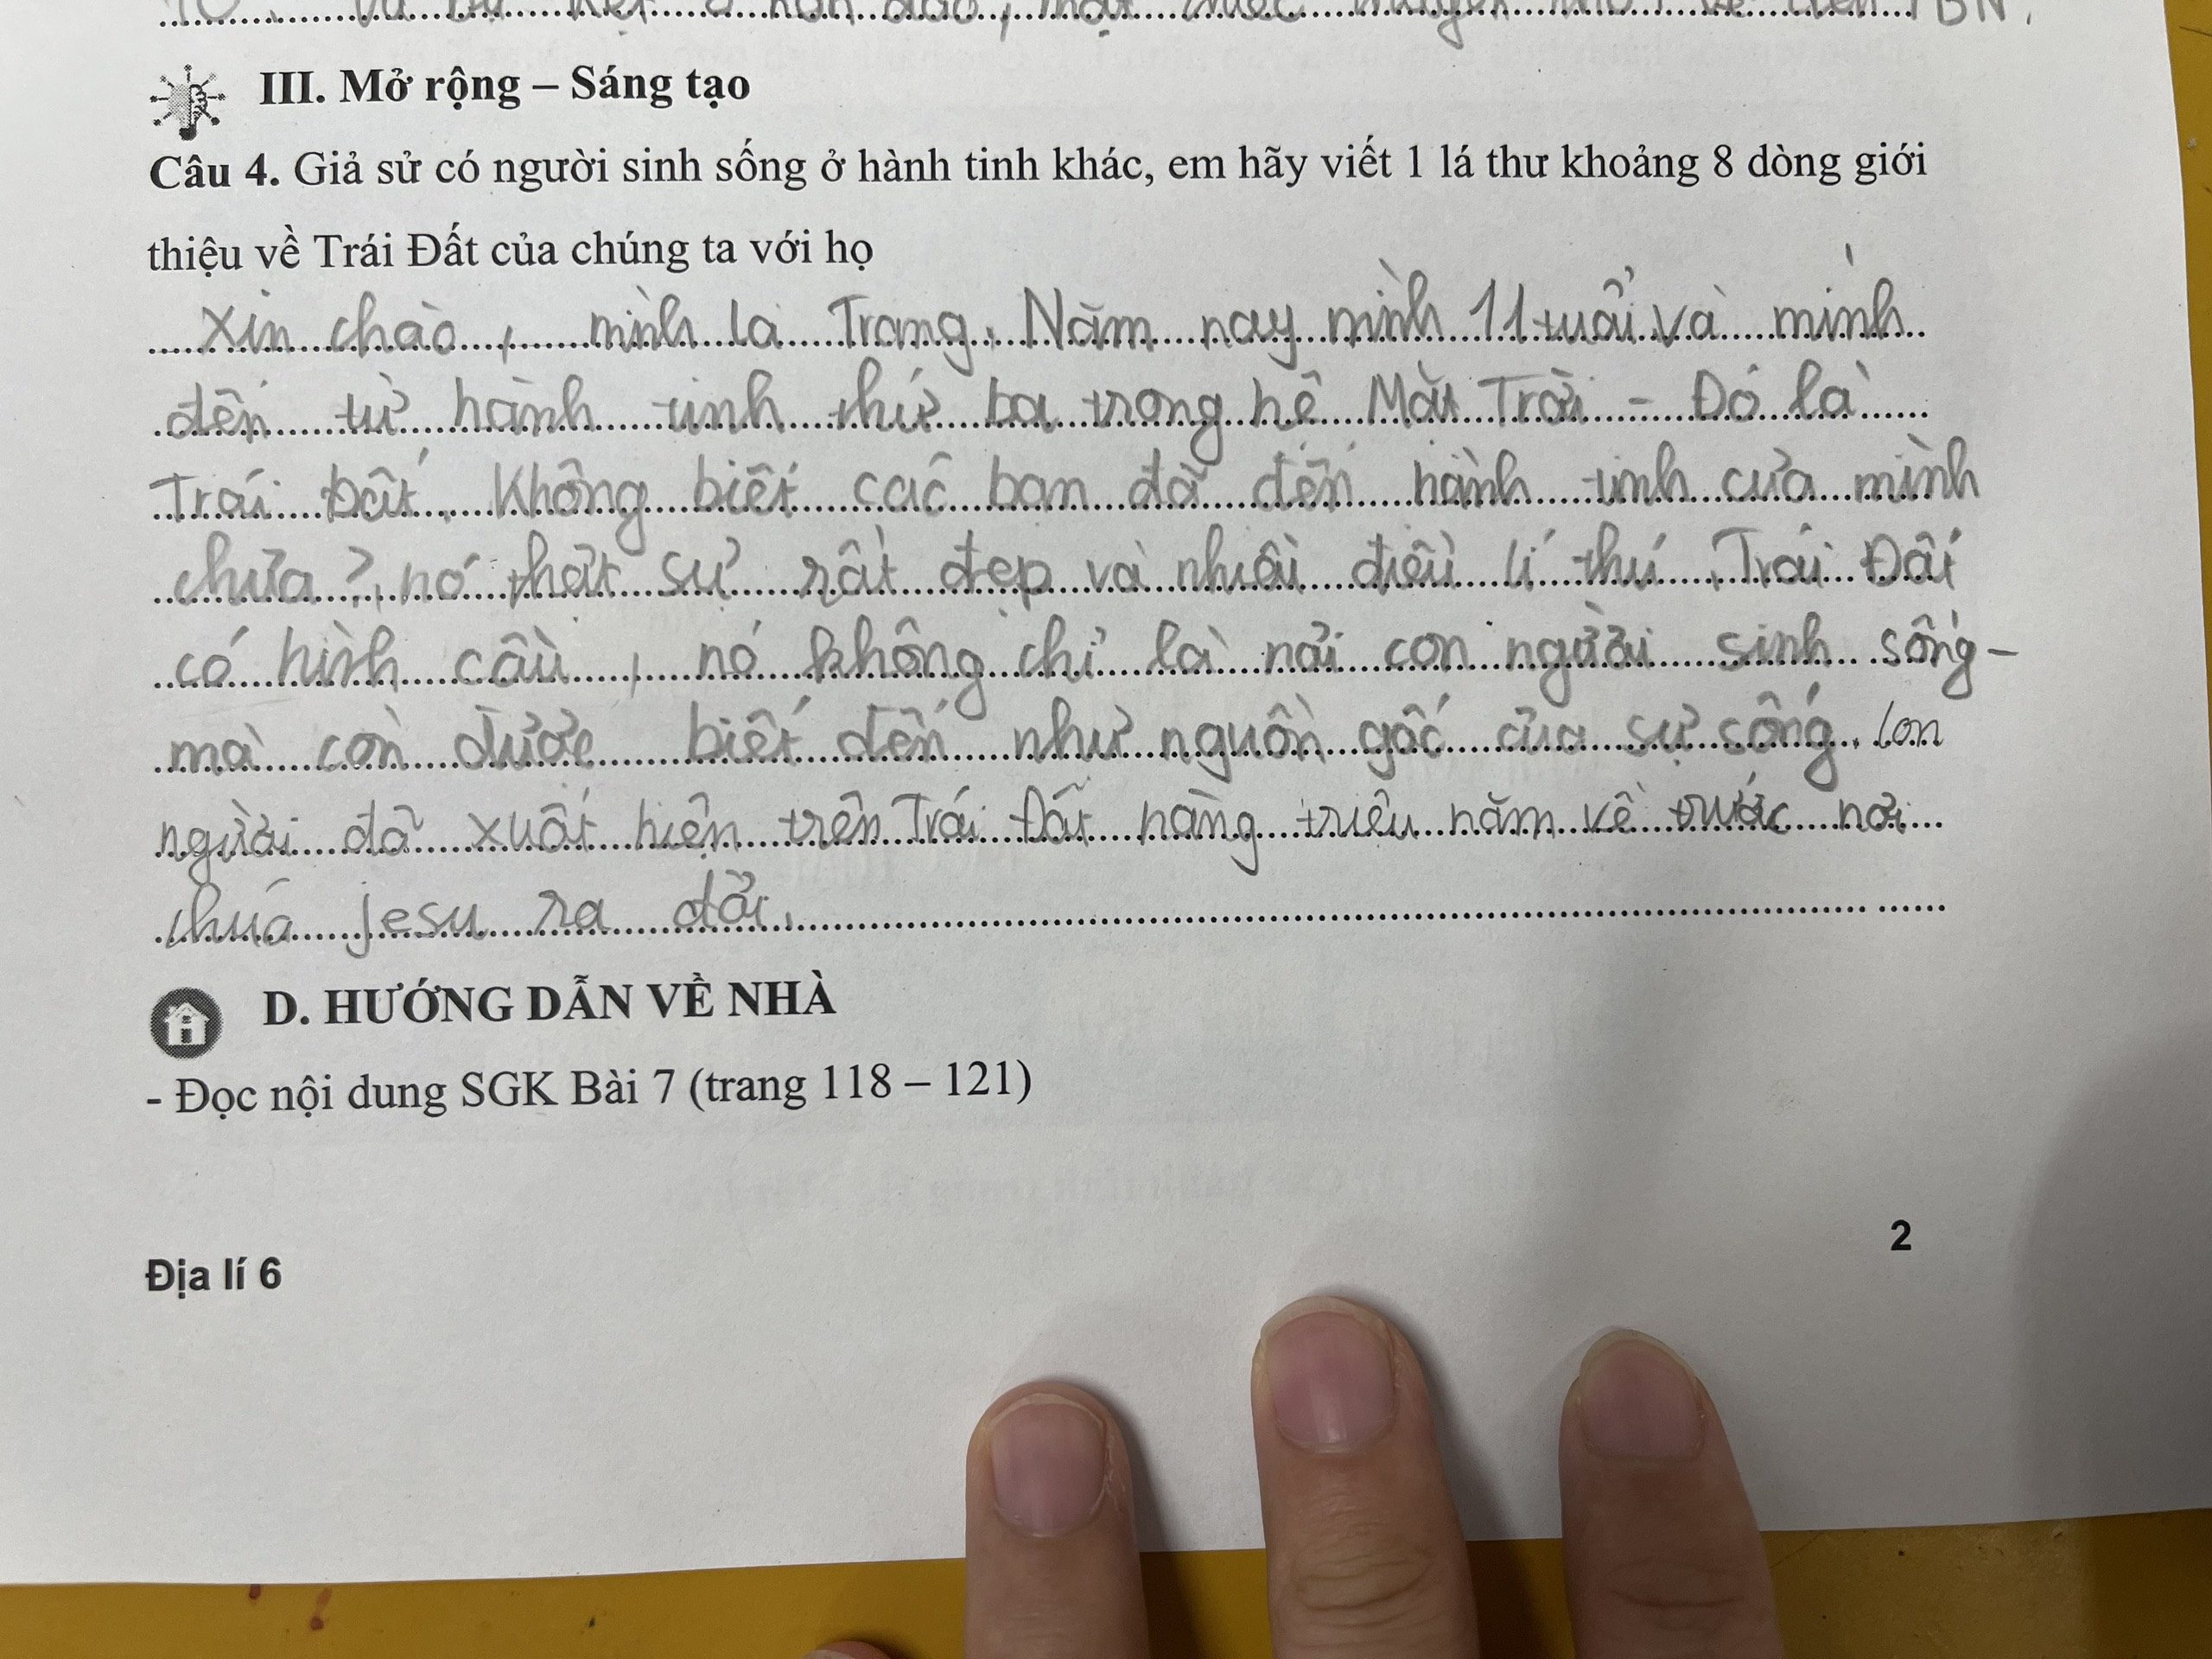 III. Mở rộng – Sáng tạo
Câu 4. Giả sử có người sinh sống ở hành tinh khác, em hãy viết 1 lá thư khoảng 8 dòng giới
thiệu về Trái Đất của chúng ta với họ
Xin chào, mình là Trang. Năm nay mình 11 tuổi và mình
đến từ hành tinh thứ ba trong hệ Mặt Trời - Đó là
Trái Đất. Không biết các bạn đã đến hành tinh của mình
chưa?, nó thật sự rất đẹp và nhiều điều lí thú. Trái Đất
có hình cầu, nó không chỉ là nơi con người sinh sống -
mà còn được biết đến như nguồn gốc của sự sống. Con
người đã xuất hiện trên Trái Đất hàng triệu năm về trước nơi
chúa jesu ra đời.
D. HƯỚNG DẪN VỀ NHÀ
- Đọc nội dung SGK Bài 7 (trang 118 – 121)
2
Địa lí 6